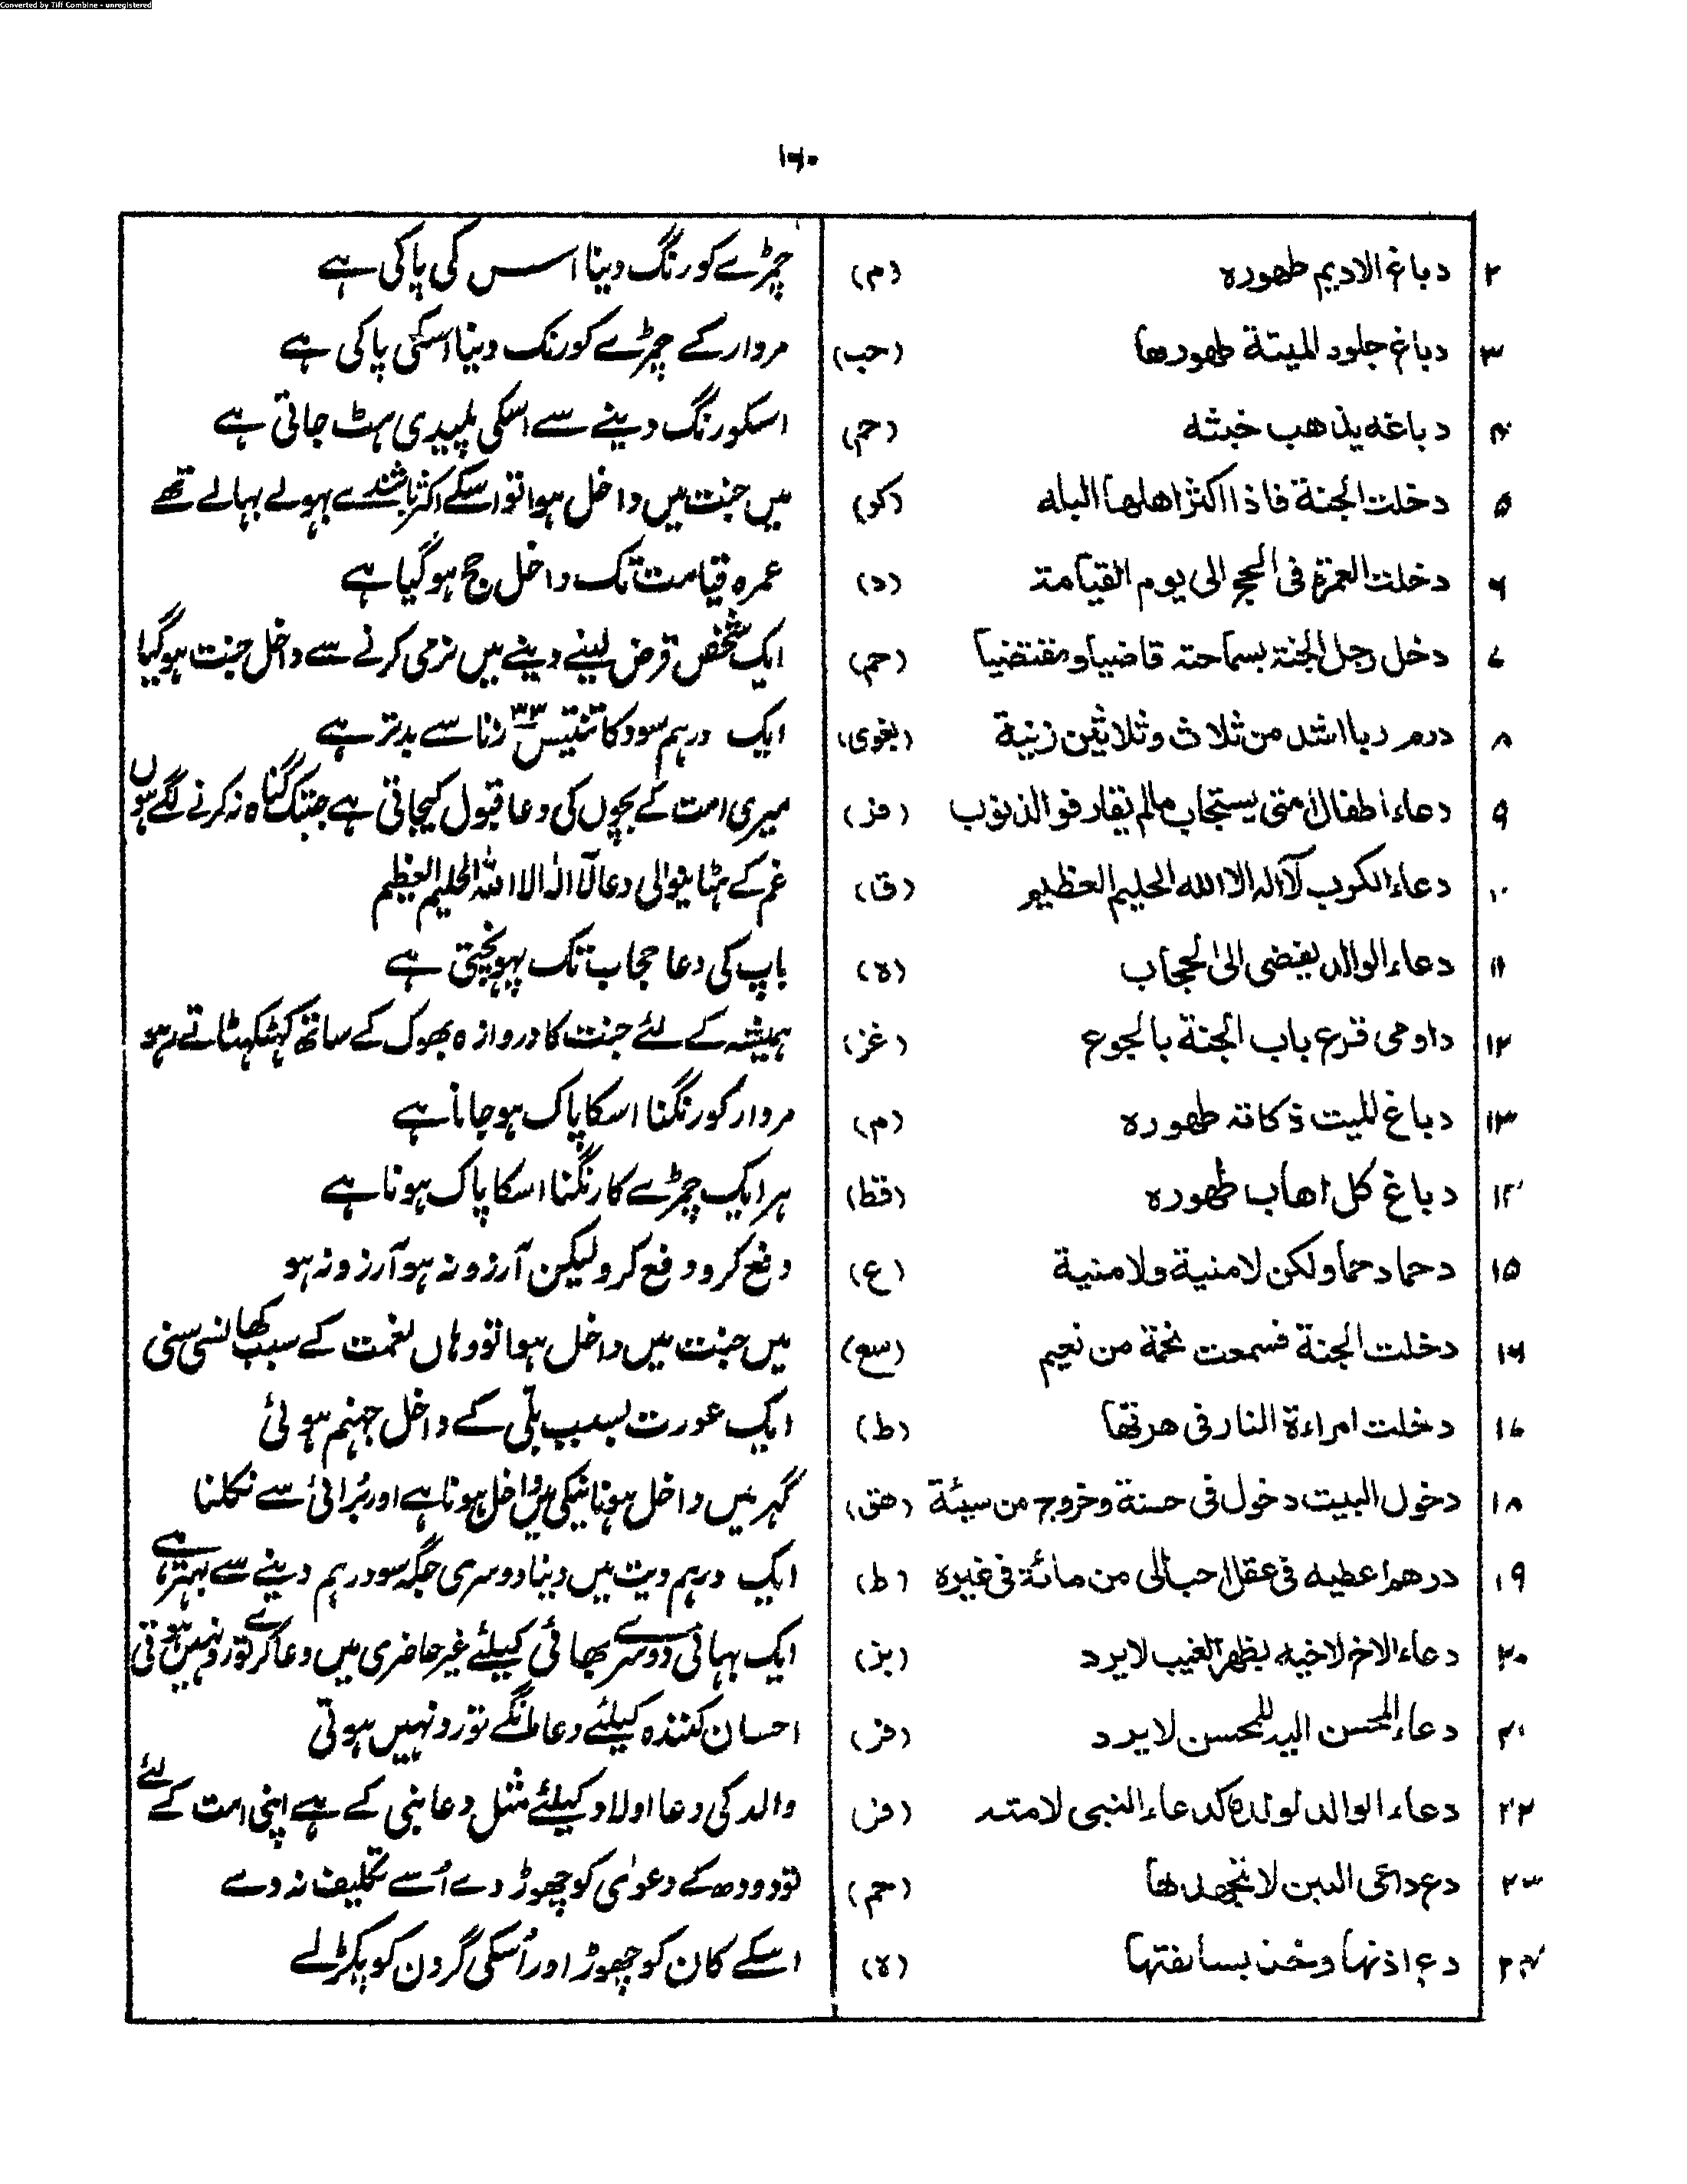 Converted by Tiff Combine - unregistered
۱۶۰
۲ دباغ الادیم طهوره (م) چمڑے کو رنگ دینا اس کی پاکی ہے
۳ دباغ جلود المیتة طهورها (حب) مردار کے چمڑے کو رنگ دینا اسکی پاکی ہے
۴ دباغه یذهب خبثه (حم) اسکو رنگ دینے سے اسکی پلیدی ہٹ جاتی ہے
۵ دخلت الجنة فاذا اکثر اهلها البله (کو) میں جنت میں داخل ہوا تو اسکے اکثر باشندے بہولے بہالے تھے
۶ دخلت العمرة فی الحج الی یوم القیامة (د) عمرہ قیامت تک داخل حج ہو گیا ہے
۷ دخل رجل الجنة بسماحته قاضیا ومقتضیا (حم) ایک شخص قرض لینے دینے میں نرمی کرنے سے داخل جنت ہو گیا
۸ درهم ربا اشد من ثلاث وثلاثین زنیة (بغوی) ایک درہم سود کا تنتیس ۳۳ زنا سے بدتر ہے
۹ دعاء اطفال امتی یستجاب مالم یقارفوا الذنوب (فز) میری امت کے بچوں کی دعا قبول کیجاتی ہے جبتک گناہ نہ کرنے لگے ہوں
۱۰ دعاء الکرب لآ اله الا الله الحلیم العظیم (قا) غم کے ہٹانیوالی دعا لآ الٰہ الا اللہ الحلیم العظیم
۱۱ دعاء الوالد یفضی الی الحجاب (ه) باپ کی دعا حجاب تک پہونچتی ہے
۱۲ داومی قرع باب الجنة بالجوع (غز) ہمیشہ کے لئے جنت کا دروازہ بھوک کے ساتھ کہٹکہٹاتے رہو
۱۳ دباغ المیت ذکاته طهوره (م) مردار کو رنگنا اسکا پاک ہو جانا ہے
۱۴ دباغ کل اهاب طهوره (قط) ہر ایک چمڑے کا رنگنا اسکا پاک ہونا ہے
۱۵ دحما دحما ولکن لا منیة ولا منیة (ع) دفع کرو دفع کرو لیکن آرزو نہ ہو آرزو نہ ہو
۱۶ دخلت الجنة فسمعت نحمة من نعیم (سع) میں جنت میں داخل ہوا تو وہاں نعمت کے سبب کھانسی سنی
۱۷ دخلت امراءة النار فی هرتها (ط) ایک عورت بسبب بلّی کے داخل جہنم ہوئی
۱۸ دخول البیت دخول فی حسنة وخروج من سیئة (هق) گہر میں داخل ہونا نیکی میں داخل ہونا ہے اور بُرائی سے نکلنا
۱۹ درهم اعطیه فی عقل احب الی من مائة فی غیره (ط) ایک درہم دیت میں دینا دوسری جگہ سو درہم دینے سے بہتر ہے
۲۰ دعاء الاخ لاخیه بظهر الغیب لا یرد (بز) ایک بہائی دوسرے بھائی کیلئے غیر حاضری میں دعا کرے تو رد نہیں ہوتی
۲۱ دعاء المحسن الیه للمحسن لا یرد (فز) احسان کنندہ کیلئے دعا مانگے تو رد نہیں ہوتی
۲۲ دعاء الوالد لولده کدعاء النبی لامته (فز) والد کی دعا اولاد کیلئے مثل دعا نبی کے ہے اپنی امت کے لئے
۲۳ دع داعی اللبن لا تجهدها (حم) تو دودھ کے دعوٰی کو چھوڑ دے اُسے تکلیف نہ دے
۲۴ دع اذنها وخذ بسالفتها (ه) اسکے کان کو چھوڑ اور اُسکی گردن کو پکڑ لے